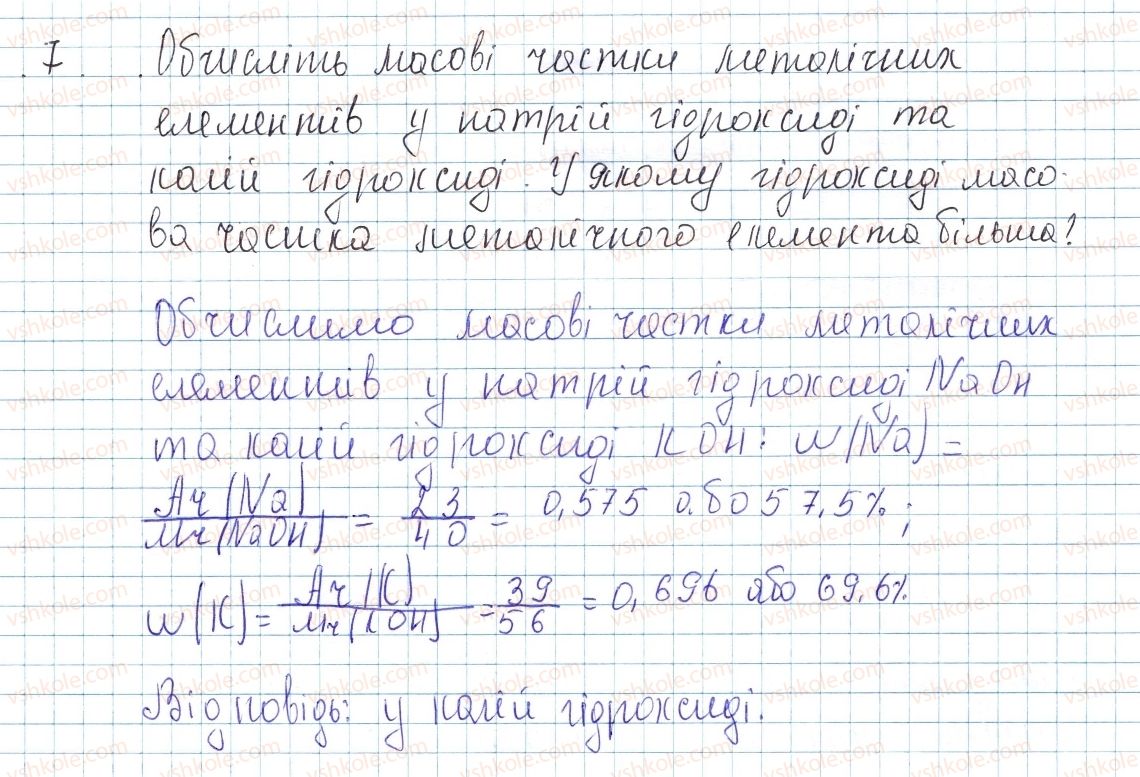 7. Обчисліть масові частки металічних
елементів у натрій гідроксиді та
калій гідроксиді. У якому гідроксиді масо-
ва частка металічного елемента більша?
Обчислимо масові частки металічних
елементів у натрій гідроксиді NaOH
та калій гідроксиді KOH: w(Na) =
Ar(Na) / Mr(NaOH) = 23 / 40 = 0,575 або 57,5%;
w(K) = Ar(K) / Mr(KOH) = 39 / 56 = 0,696 або 69,6%
Відповідь: у калій гідроксиді.
vshkole.com